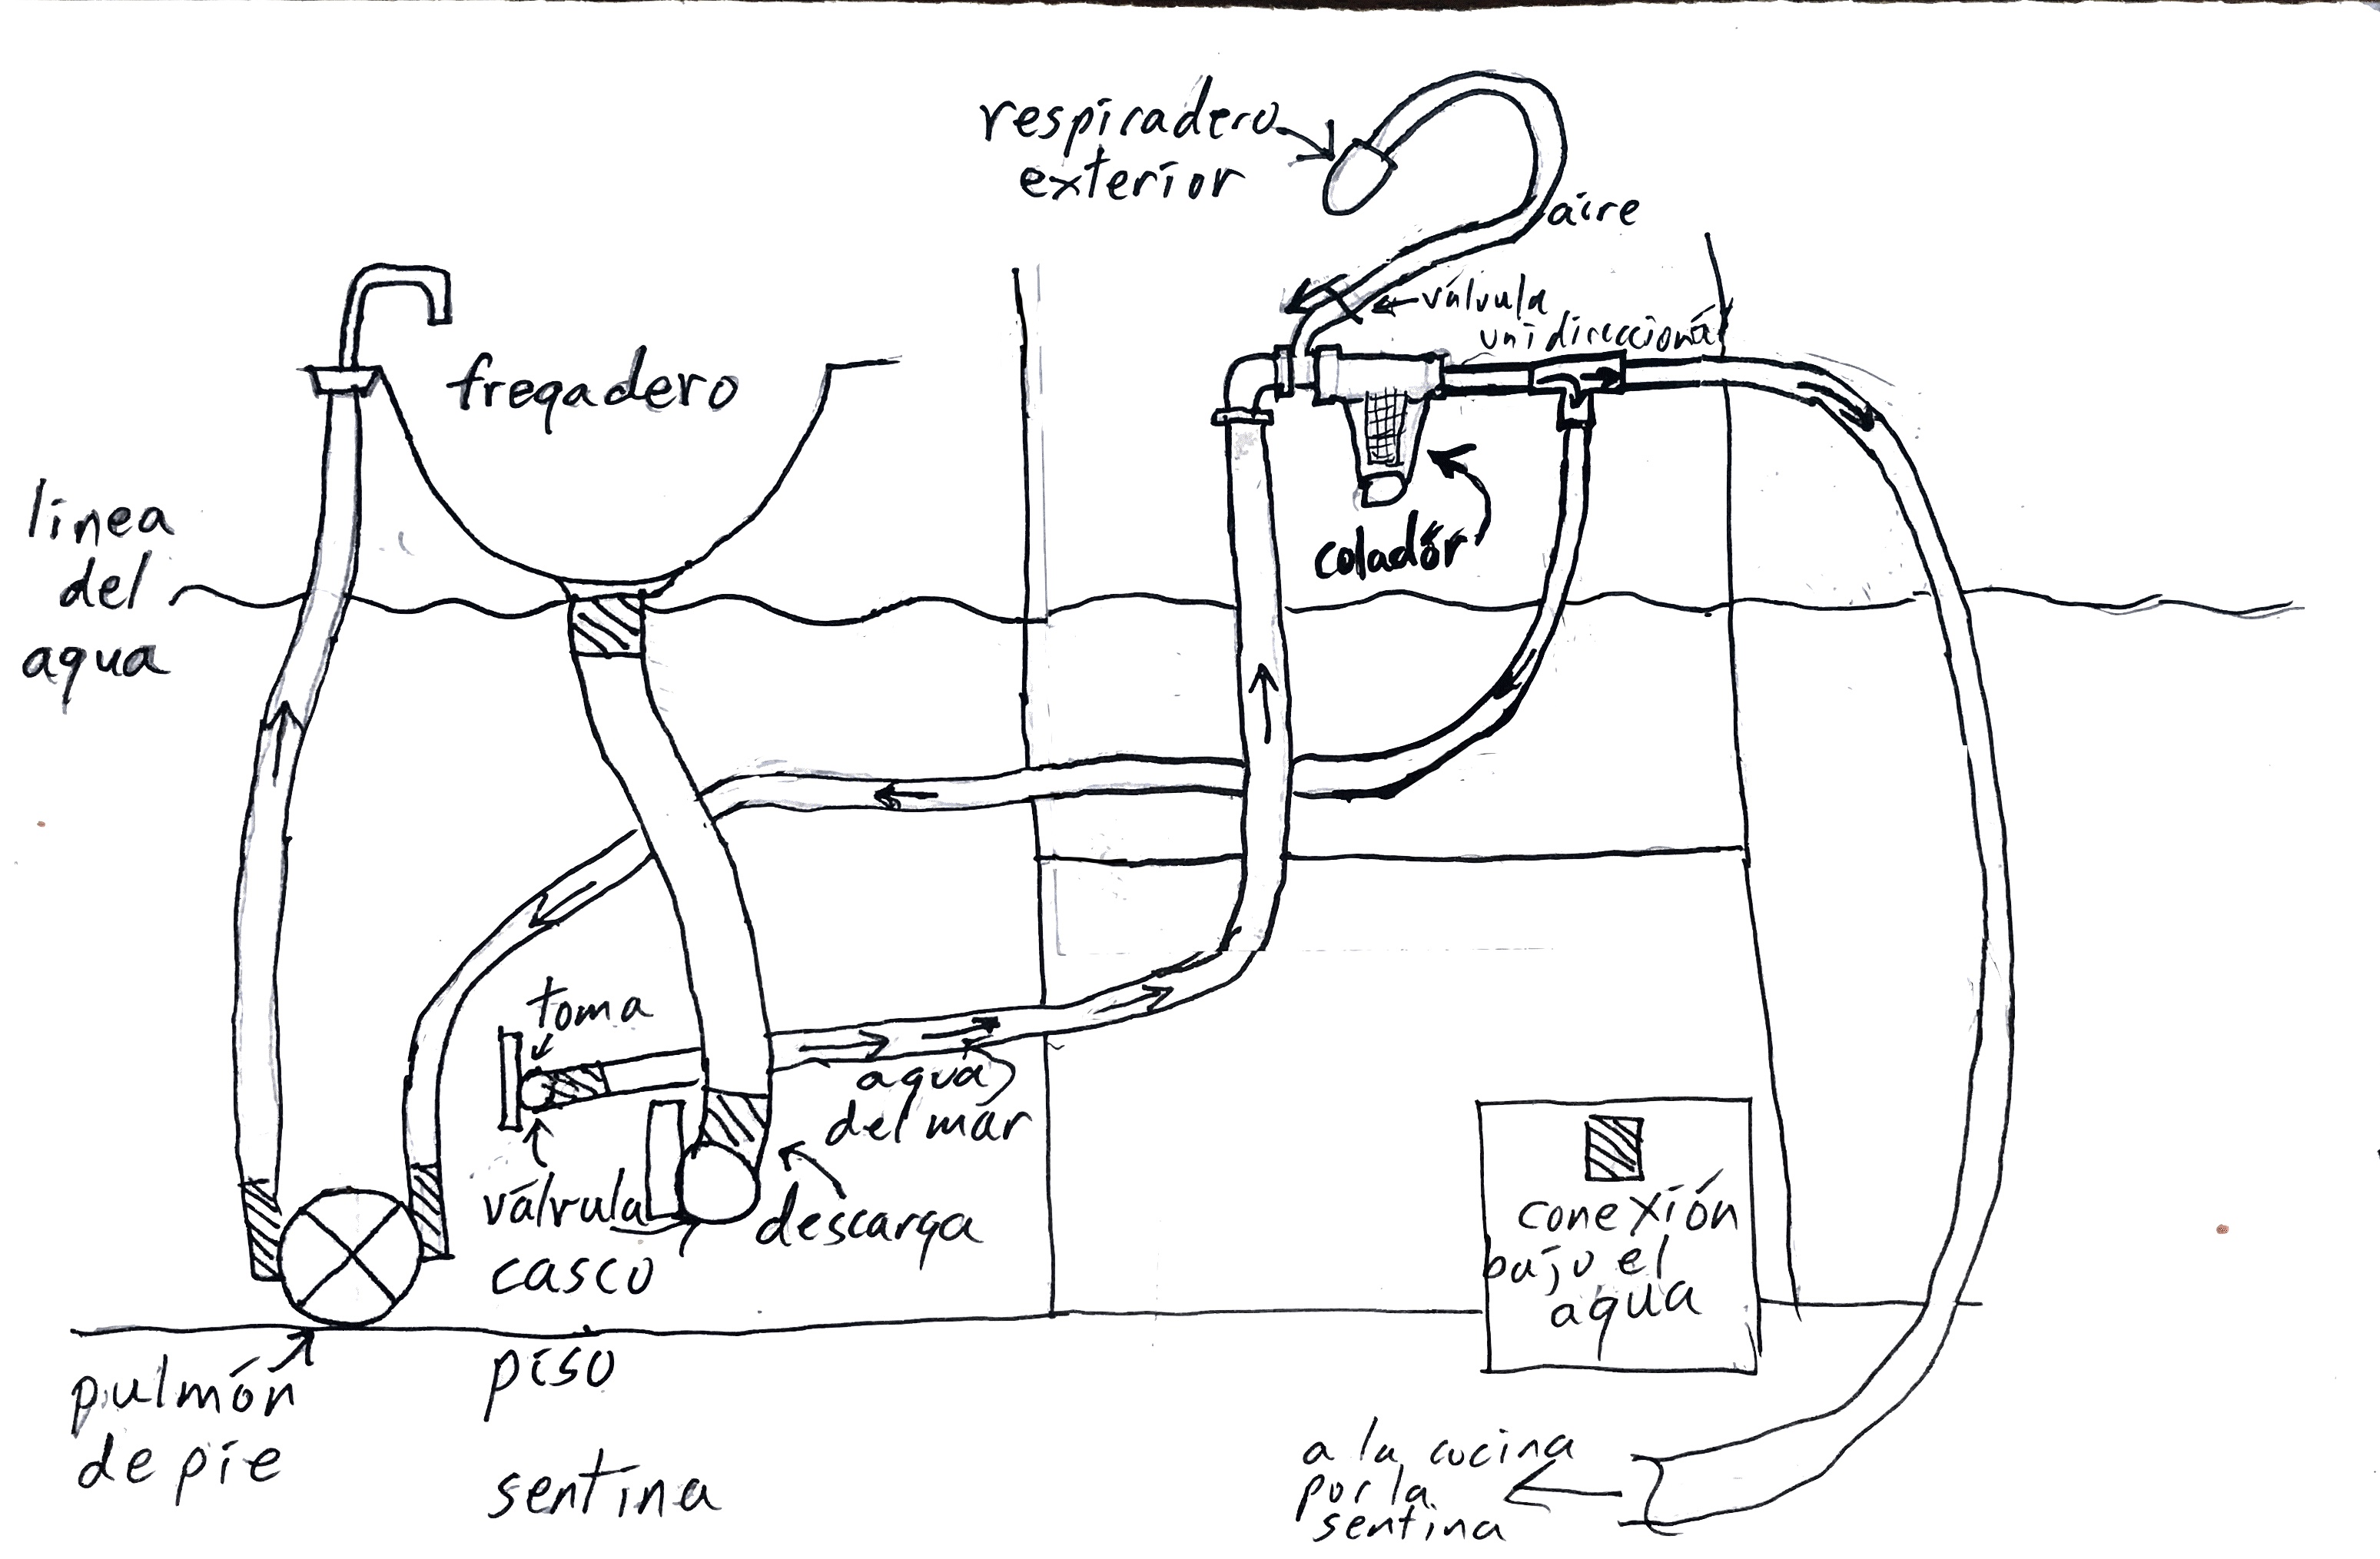 respiradero
exterior
aire
válvula
unidireccional
fregadero
linea
del
agua
colador
toma
agua
del mar
válvula
casco
descarga
conexión
bajo el
agua
piso
pulmón
de pie
sentina
a la cocina
por la
sentina